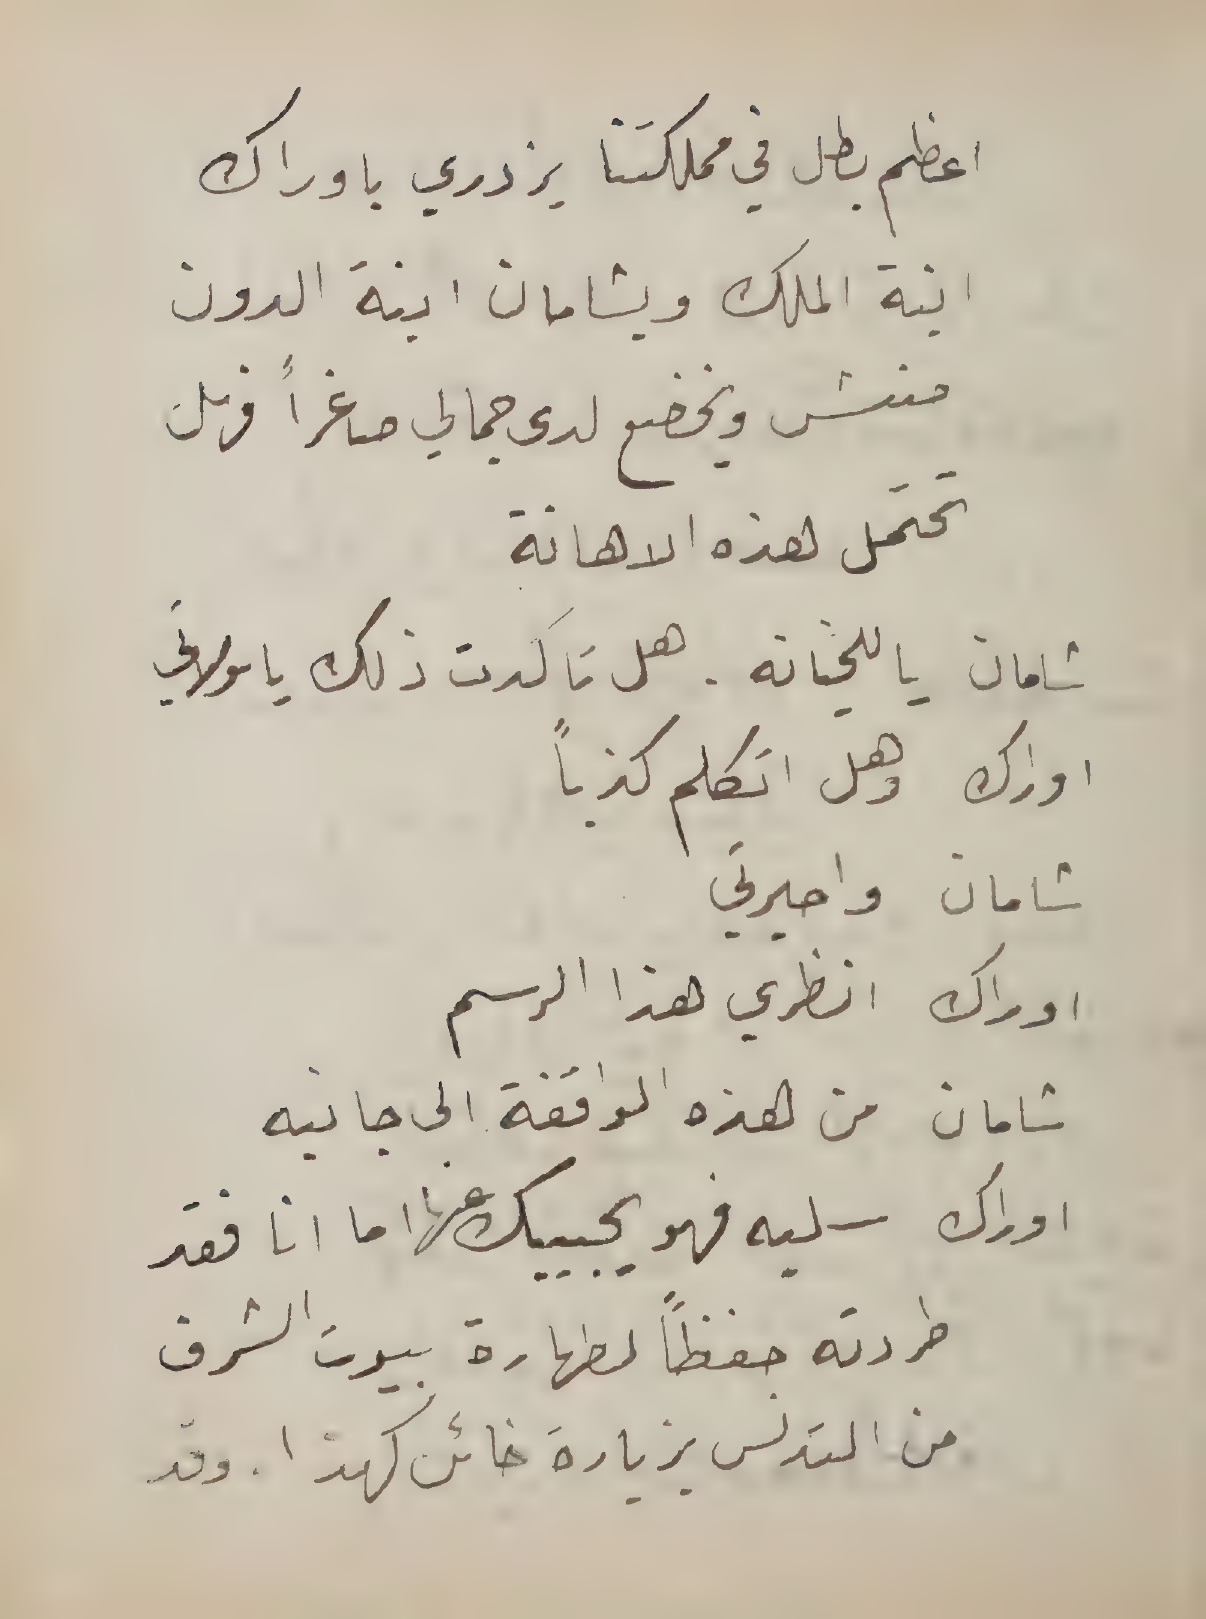 اعظم بطل في مملكتنا يزدري باوراك
ابنة الملك وبشامان ابنة الدون
منش ويخضع لدى جمالي صاغراً فهل
تحتمل هذه الاهانة
شامان يا للخيانه . هل تاكدت ذلك يا مولاتي
اوراك وهل اتكلم كذباً
شامان واحيرتي
اوراك انظري هذا الرسم
شامان من هذه الواقفة الى جانبه
اوراك سليه فهو يجيبك عنها اما انا فقد
طردته حفظاً لطهارة بيوت الشرف
من التدنس بزيارة خائن كهذا . وقد